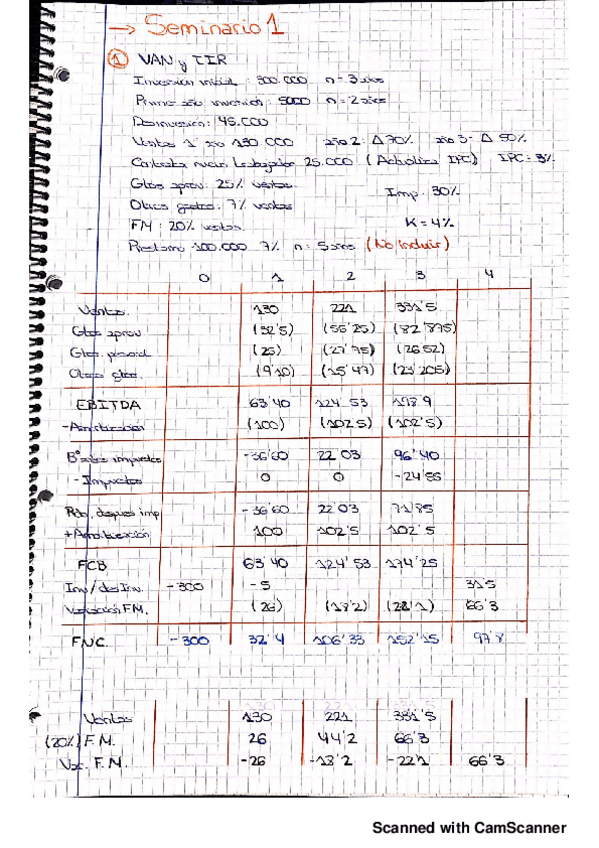 → Seminario 1
① VAN y TIR
Inversión inicial : 300.000 n = 3 años
Primer año inversión : 5000 n = 2 años
Desinversión: 45.000
Ventas 1º año 130.000 año 2: Δ 70% año 3: Δ 50%
Contrata nuevo trabajador 25.000 (Actualiza IPC) IPC = 3%
Gtos aprov. 25% ventas. Imp. 30%
Otros gastos. 7% ventas
FM : 20% ventas. K = 4%
Préstamo 100.000 7% n = 5 años (No incluir)
0 1 2 3 4
Ventas. 130 221 331'5
Gtos aprov (32'5) (55'25) (82'875)
Gtos. personal (25) (25'75) (26'52)
Otros gtos. (9'10) (15'47) (23'205)
EBITDA 63'40 124'53 198'9
-Amortización (100) (102'5) (102'5)
Bº antes impuestos -36'60 22'03 96'40
- Impuestos 0 0 -24'55
Rdo. después imp -36'60 22'03 71'85
+Amortización 100 102'5 102'5
FCB 63'40 124'53 174'25
Inv/desInv. -300 -5 31'5
Variación FM. (26) (18'2) (22'1) 66'3
FNC. -300 32'4 106'33 152'15 97'8
Ventas 130 221 331'5
(20%) F.M. 26 44'2 66'3
Var. F.M. -26 -18'2 -22'1 66'3
Scanned with CamScanner